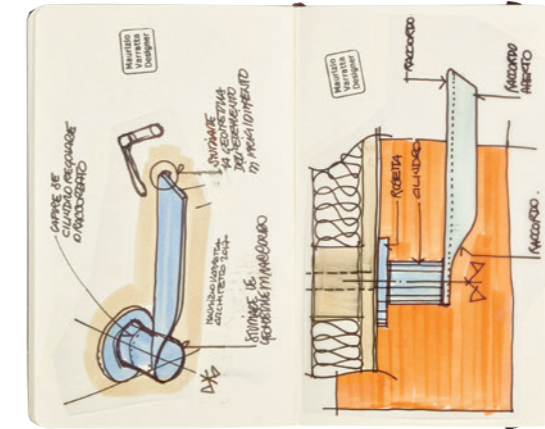 Maurizio
Varratta
Designer
CAPIRE SE
CILINDRO REGOLARE
O RACCORDATO
STUDIARE
LA GEOMETRIA
DELL'ELEMENTO
DI IRRIGIDIMENTO
MAURIZIO VARRATTA
ARCHITETTO
STUDIARE LE
GEOMETRIE DI RACCORDO
Maurizio
Varratta
Designer
RACCORDO
RACCORDO
APERTO
ROSETTA
CILINDRO
RACCORDO.